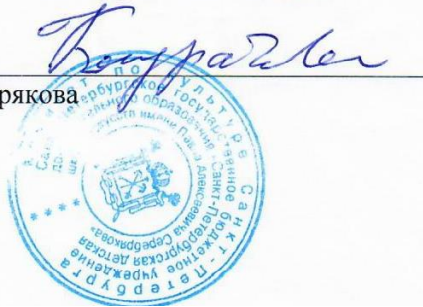 рякова
по культуре Санкт-Петербурга
Петербургское государственное бюджетное учреждение
образования «Санкт-Петербургская детская
искусств имени Павла Алексеевича Серебрякова»